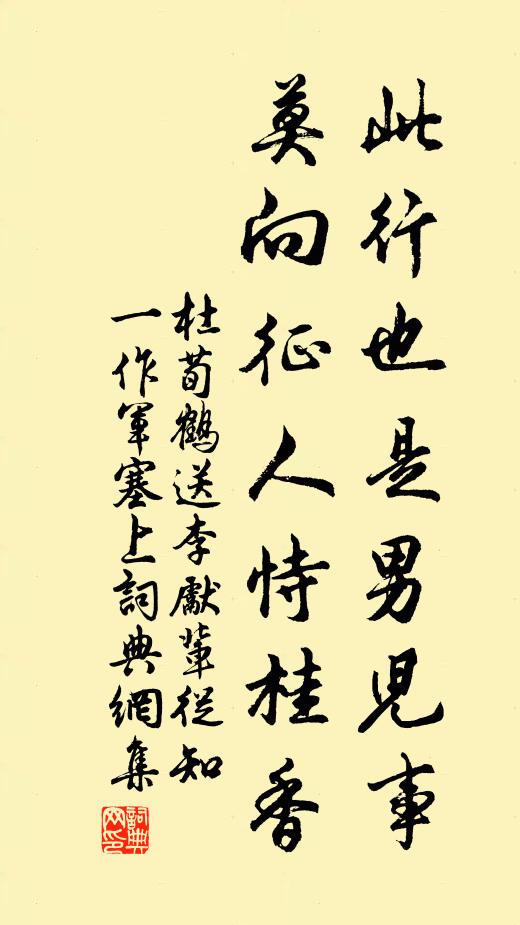 此行也是男兒事
莫向征人恃桂香
杜荀鶴送李獻輩從知
一作軍塞上詞典網集
詞典
网印